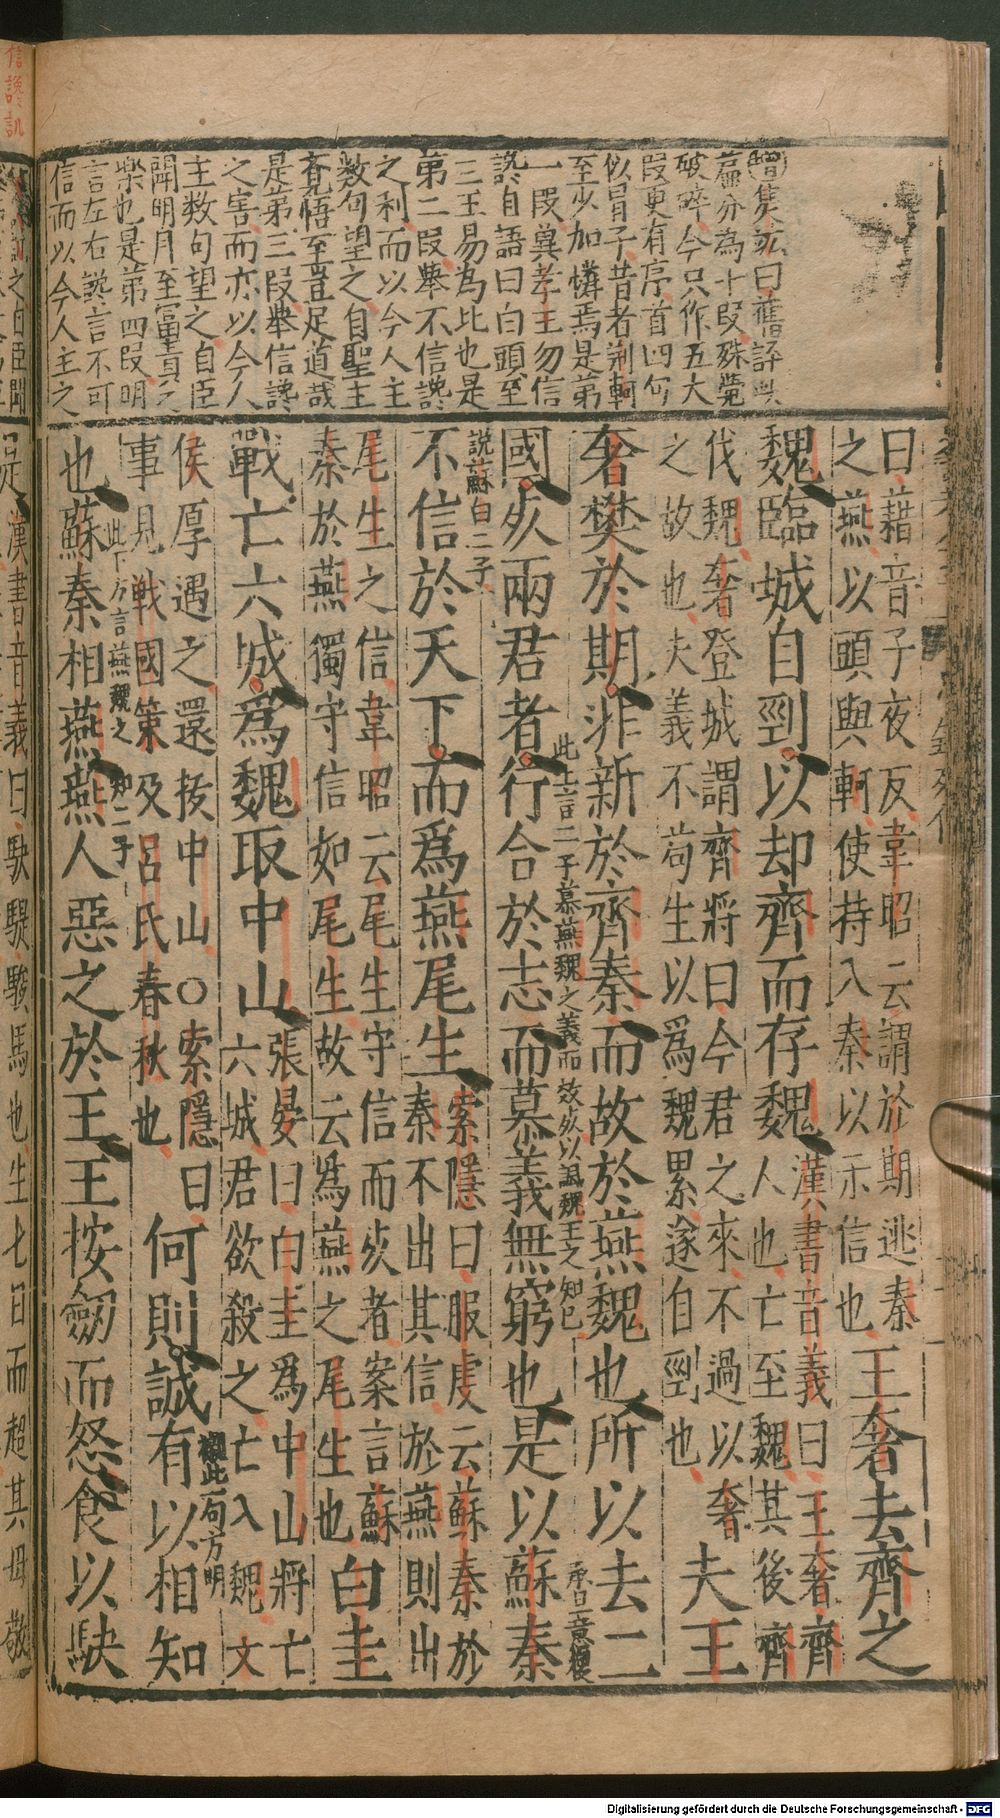 增隻竑曰舊評㕥
蕭分為十段殊覺
破碎今只作五大
段更有序首四句
似冒子昔者荆軻
至少加憐焉是第
一段冀孝王勿信
讒自語曰白頭至
三王易為比也是
第二段舉不信讒
之利而以今人主
数句望之自聖主
覺悟至豈足道哉
是第三段舉信讒
之害而亦以今人
主数句望之自臣
聞明月至富貴之
樂也是第四段明
言左右讒言不可
信而以今人主之
曰藉音子夜反韋昭云謂於期逃秦
之燕以頭與軻使持入秦以示信也
王奢去齊之
魏臨城自剄以却齊而存魏
漢書音義曰王奢齊
人也亡至魏其後齊
伐魏奢登城謂齊將曰今君之來不過以奢
之故也夫義不苟生以爲魏累遂自剄也
夫王
奢樊於期非新於齊秦而故於燕魏也所以去二
承上意復
國死兩君者行合於志而慕義無窮也是以蘇秦
此上言二子慕燕魏之義而效死以諷魏王之知已
說蘇白二子
不信於天下而爲燕尾生
索隱曰服虔云蘇秦於
秦不出其信於燕則出
尾生之信韋昭云尾生守信而死者案言蘇
秦於燕獨守信如尾生故云爲燕之尾生也
白圭
戰亡六城爲魏取中山
張晏曰白圭爲中山將亡
六城君欲殺之亡入魏文
侯厚遇之還拔中山○索隱曰
事見戰國策及呂氏春秋也
何則誠有以相知
此一句方明
此下方言燕魏之知二子
也蘇秦相燕燕人惡之於王王按劒而怒食以駃
漢書音義曰駃騠駿馬也生七日而超其母敬
Digitalisierung gefördert durch die Deutsche Forschungsgemeinschaft - DFG